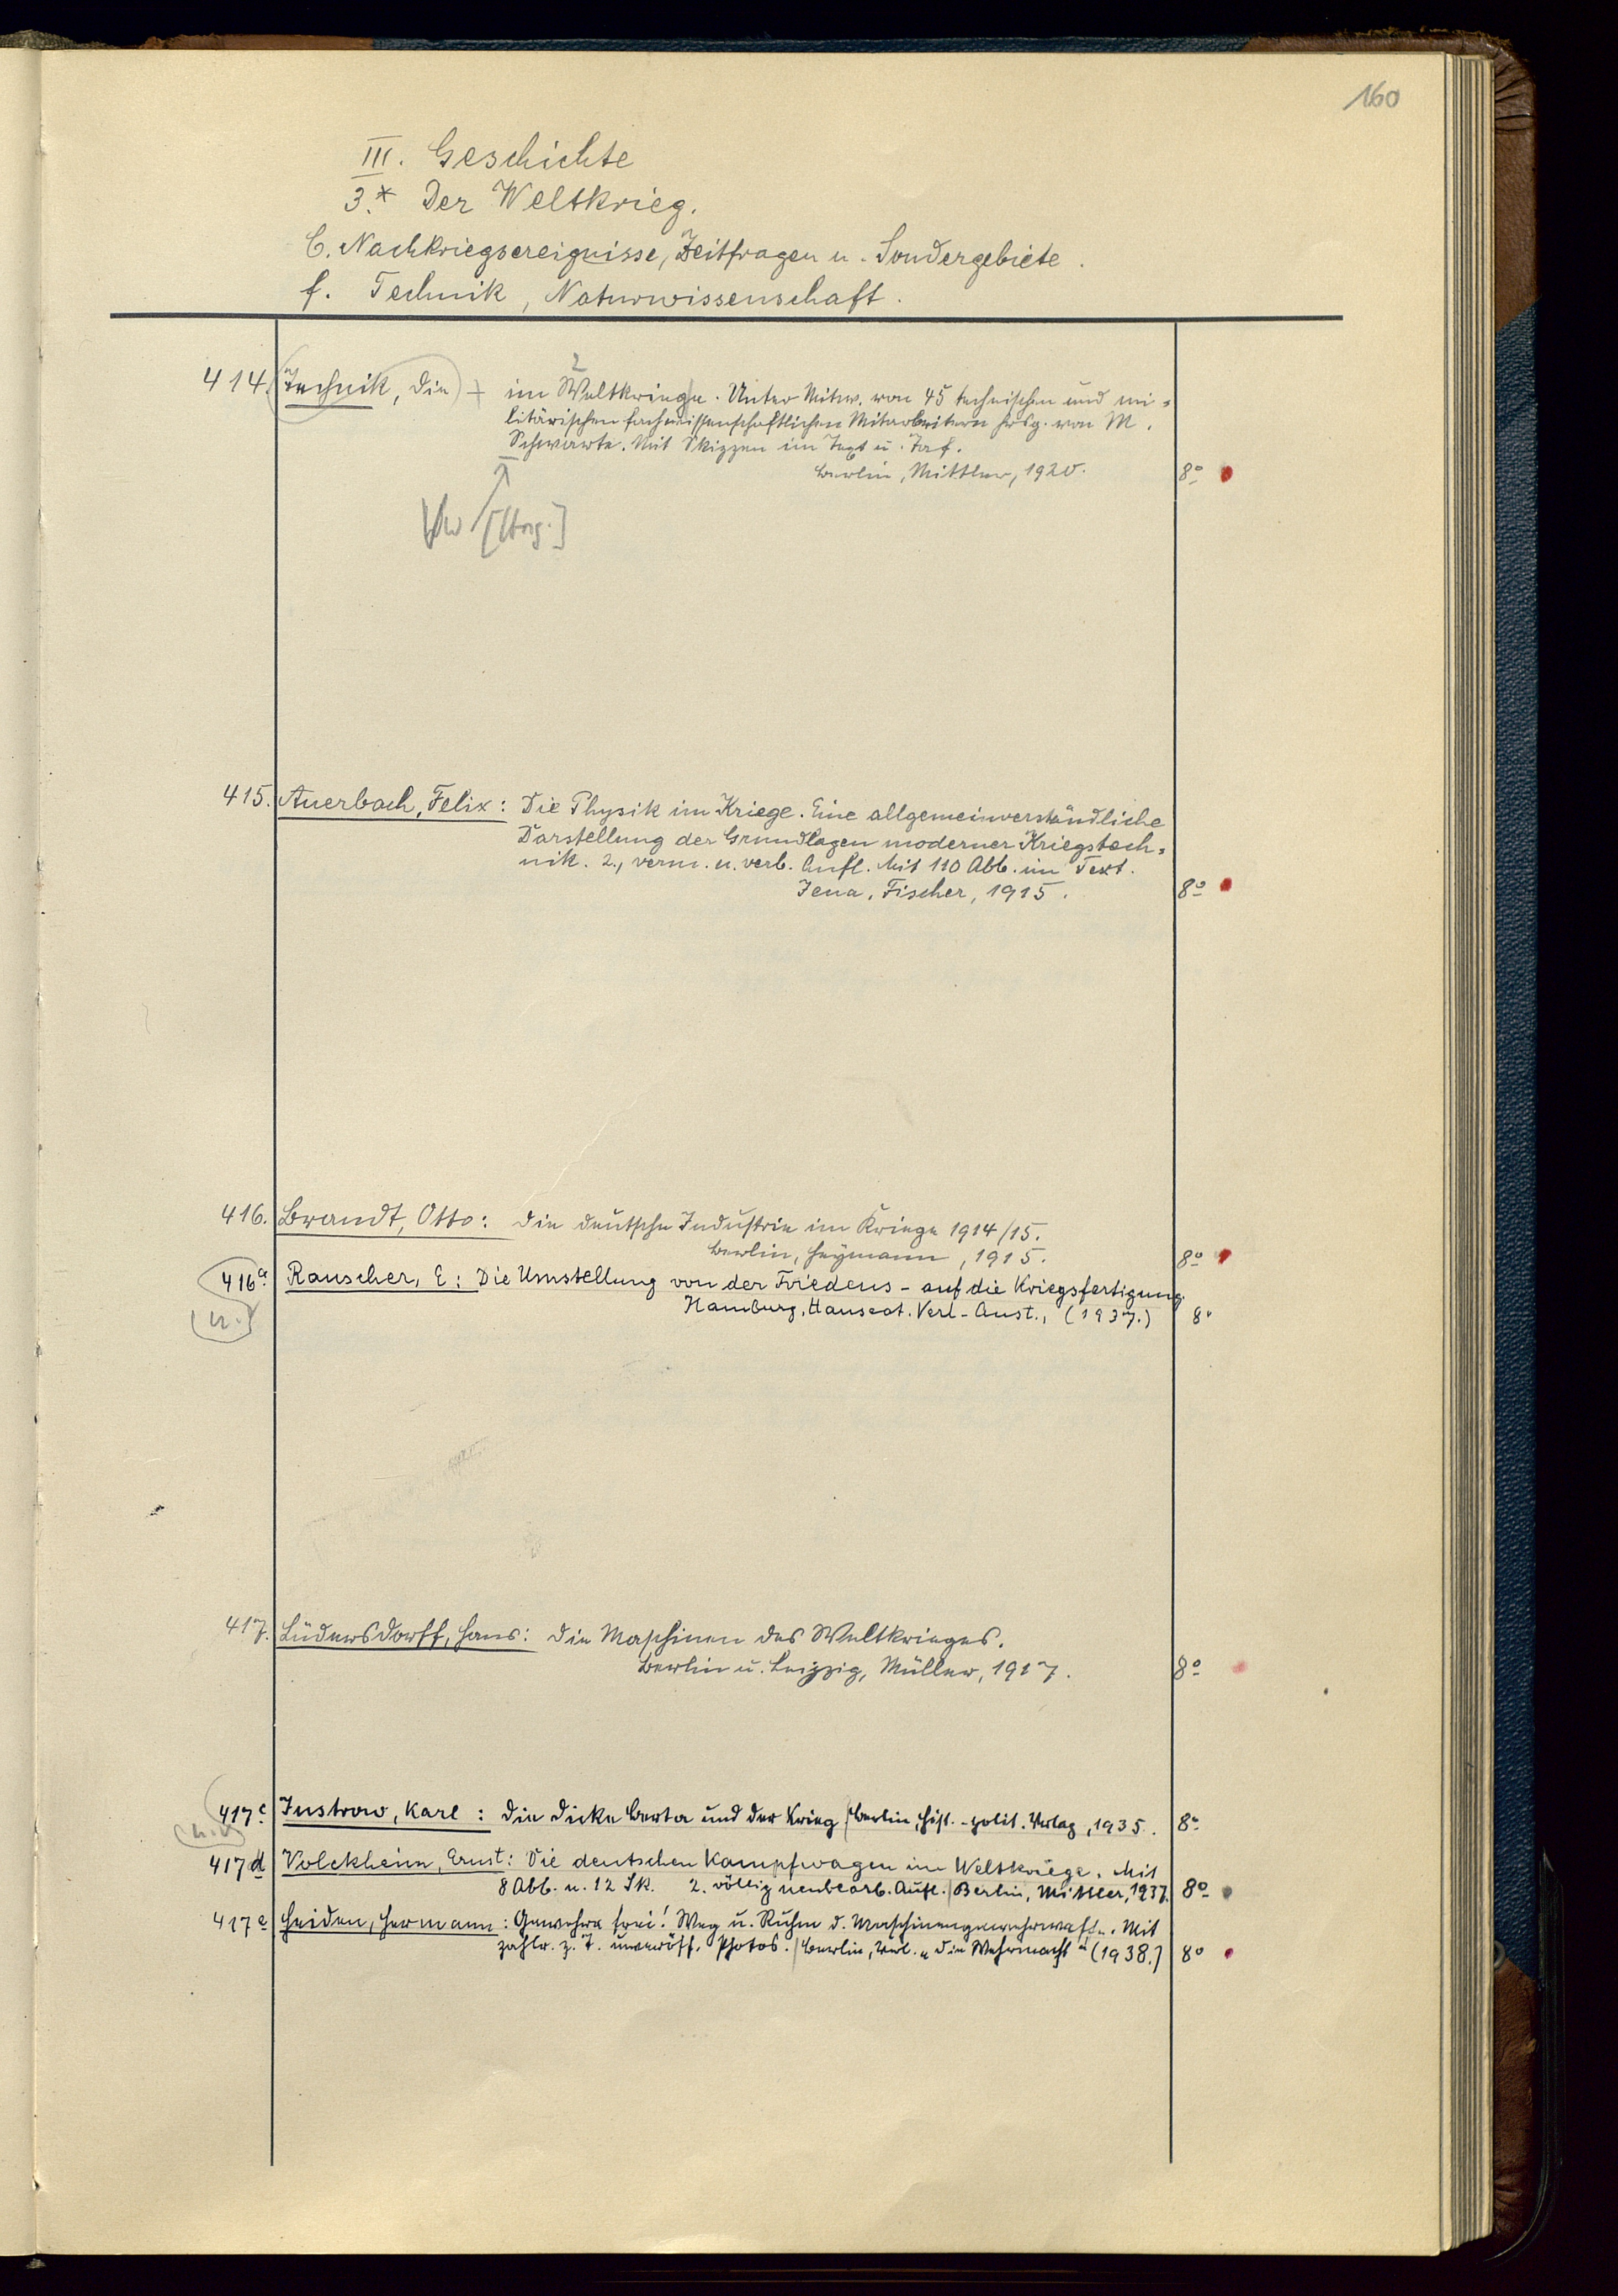 160
III. Geschichte
3.* Der Weltkrieg.
C. Nachkriegsereignisse, Zeitfragen u. Sondergebiete.
f. Technik, Naturwissenschaft.
414. Technik, Die + im Weltkriege. Unter Mitw. von 45 technischen und mi-
2
litärischen fachwissenschaftlichen Mitarbeitern hrsg. von M.
Schwarte. Mit Skizzen im Text u. Taf.
Berlin, Mittler, 1920. 8°
[Hrsg.]
415. Auerbach, Felix: Die Physik im Kriege. Eine allgemeinverständliche
Darstellung der Grundlagen moderner Kriegstech-
nik. 2., verm. u. verb. Aufl. Mit 110 Abb. im Text.
Jena, Fischer, 1915. 8°
416. Brandt, Otto: Die deutsche Industrie im Kriege 1914/15.
Berlin, Heymann, 1915. 8°
416a Rauscher, E: Die Umstellung von der Friedens- auf die Kriegsfertigung.
Hamburg, Hanseat. Verl.-Anst., (1937.) 8°
417. Lüdersdorff, Hans: Die Maschinen des Weltkrieges.
Berlin u. Leipzig, Müller, 1917. 8°
417c Justrow, Karl: Die Dicke Berta und der Krieg / Berlin, Hist.-polit. Verlag, 1935. 8°
417d Volckheim, Ernst: Die deutschen Kampfwagen im Weltkriege. Mit
8 Abb. u. 12 Sk. 2. völlig neubearb. Aufl. / Berlin, Mittler, 1937. 8°
417e Heiden, Hermann: Gewehre frei! Weg u. Ruhm d. Maschinengewehrwaffe. Mit
zahlr. z. T. unveröff. Photos. / Berlin, Verl. „Die Wehrmacht“ (1938.) 8°